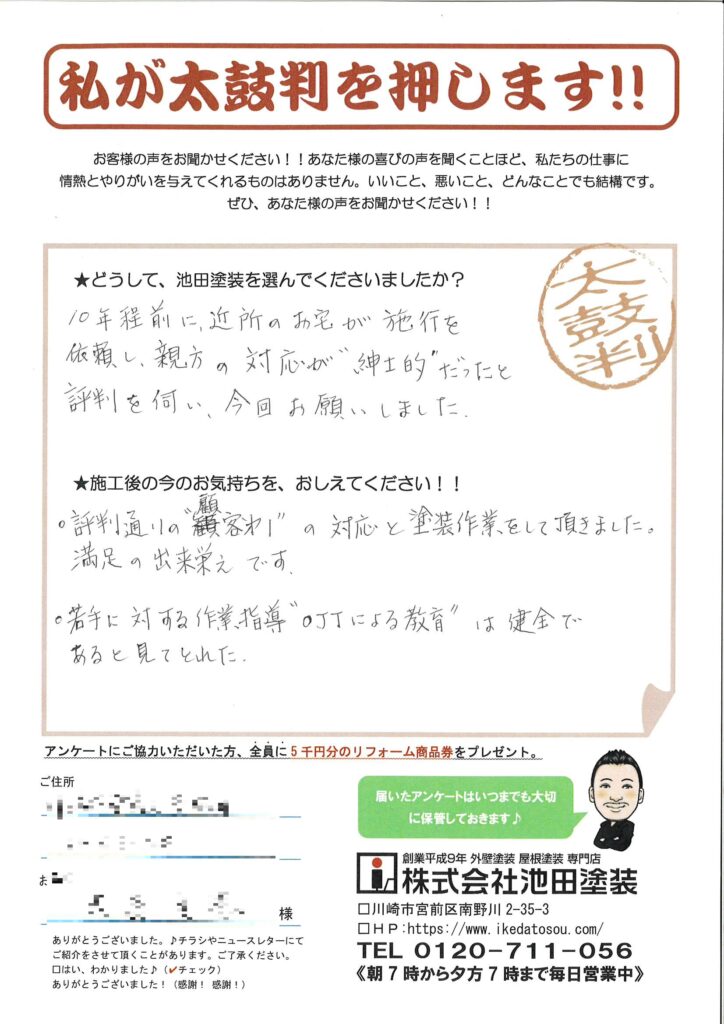 私が太鼓判を押します!!
お客様の声をお聞かせください！！あなた様の喜びの声を聞くことほど、私たちの仕事に
情熱とやりがいを与えてくれるものはありません。いいこと、悪いこと、どんなことでも結構です。
ぜひ、あなた様の声をお聞かせください！！
太鼓判
★どうして、池田塗装を選んでくださいましたか？
10年程前に、近所のお宅が施行を
依頼し、親方の対応が"紳士的"だったと
評判を伺い、今回お願いしました.
★施工後の今のお気持ちを、おしえてください！！
顧
○評判通りの"客わり"の対応と塗装作業をして頂きました。
満足の出来栄えです.
○若手に対する作業指導"OJTによる教育"は健全で
あると見てとれた.
アンケートにご協力いただいた方、全員に5千円分のリフォーム商品券をプレゼント。
ご住所
届いたアンケートはいつまでも大切
に保管しておきます♪
お
様
創業平成9年 外壁塗装 屋根塗装 専門店
株式会社池田塗装
□川崎市宮前区南野川2-35-3
□HP:https://www.ikedatosou.com/
TEL 0120-711-056
《朝7時から夕方7時まで毎日営業中》
ありがとうございました。♪チラシやニュースレターにて
ご紹介をさせて頂くことがあります。ご了承ください。
□はい、わかりました♪（✔チェック）
ありがとうございました！（感謝！感謝！）